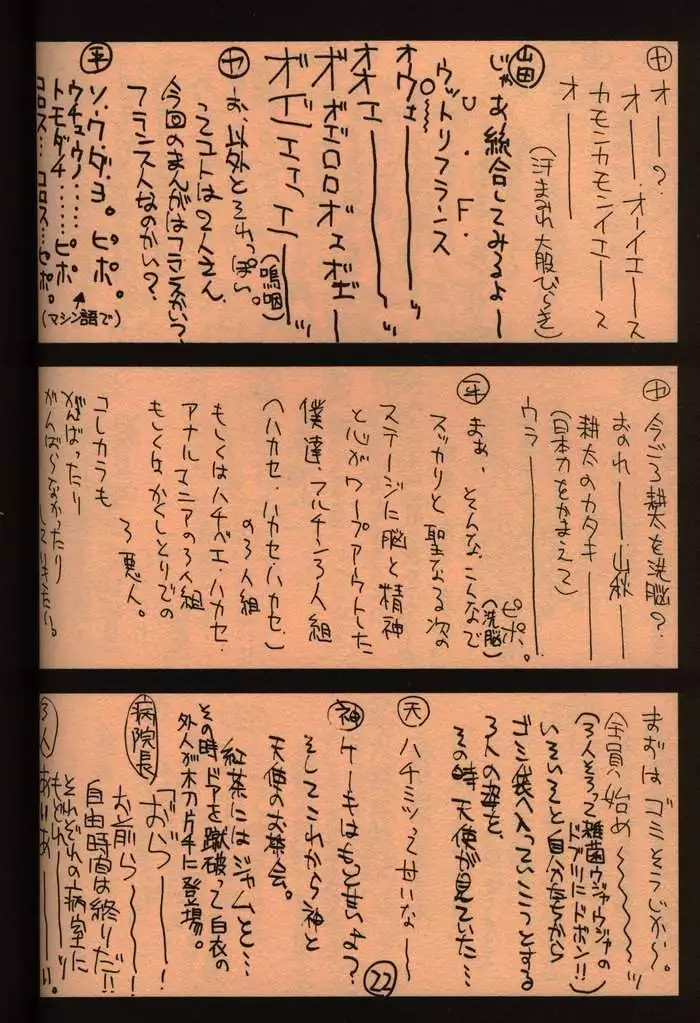 ヤ
オーー?
オーー・オーイエーース
カモンカモンイエーース
オーーーー
(汗まみれ大股びらき)
山田
じゃあ統合してみるよー
U・F・O〜
ウットリフランス
オウェーーーッ
オオェーーーッ
オボェロロオェオボェー
オェーーッ(嗚咽)
ヤ
お、以外とそれっぽい。
ってコトは2人さん、
今回のまんがはフランスがい?
フランス人なのかい?
平
ソ・ウ・ダ・ヨ。ピポ。
ウチュウノ……ピポ
トモダチ……ピポ
コロス…コロス…ピポ。
(マシン語で)
ヤ
今ごろ耕太を洗脳?
おのれーー山秋ーー
耕太のカタキーーー
(日本刀をかまえて)
ウラーーーーー
ピポ。
(洗脳)
平
まぁ、そんな、こんなで
スッカリと聖なる次の
ステージに脳と精神
と心がワープアウトした
僕達、フルチン3人組
(ハカセ・ハカセ・ハカセ、)
の3人組
もしくはハチベエ・ハカセ・
アナルマニアの3人組
もしくはかくしとりでの
3悪人。
コレカラも
がんばったり
がんばらなかったり
していきたい。
まずはゴミそうじから〜。
全員始め〜〜〜〜ッ
(3人そろって雑菌ウジャウジャの
ドブ川にドボン!!)
いそいそと自分たちから
ゴミ袋へ入っていこうとする
3人の姿を、
その時天使が見ていた…
天
ハチミツって甘いな〜
神
ケーキはもっと甘いよ?
そしてこれから神と
天使のお茶会。
紅茶にはジャムと…
その時ドアを蹴破って白衣の
外人が木刀片手に登場。
病院長
「おら〜〜〜〜!
お前ら〜〜〜〜!
自由時間は終りだ!!
それぞれの病室に
もどれーーーッ
3人
あいあーーーい。
22